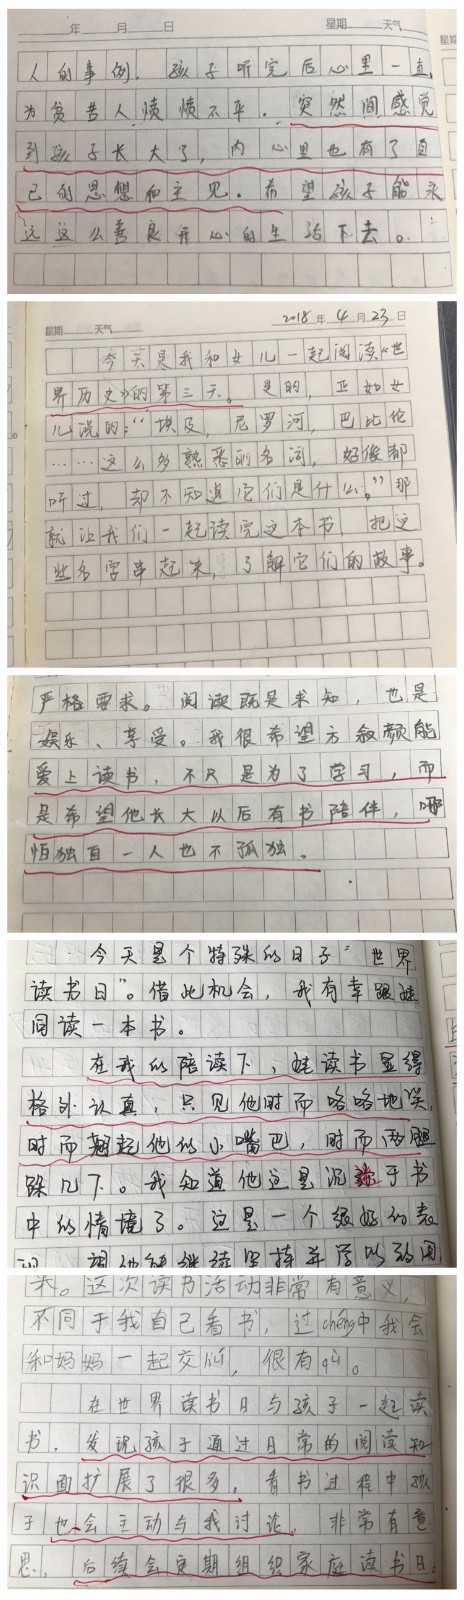 年 月 日 星期 天气
星期
人的事例。孩子听完后心里一直
为贫苦人愤愤不平。突然间感觉
到孩子长大了，内心里也有了自
己的思想和主见。希望孩子能永
远这么善良开心的生活下去。
星期 天气 2018年4月23日
今天是我和女儿一起阅读《世
界历史》的第三天。是的，正如女
儿说的：“埃及，尼罗河，巴比伦
……这么多熟悉的名词，好像都
听过，却不知道它们是什么。”那
就让我们一起读完这本书，把这
些名字串起来，了解它们的故事。
严格要求。阅读既是求知，也是
娱乐、享受。我很希望方叙颜能
爱上读书，不只是为了学习，而
是希望他长大以后有书陪伴，哪
怕独自一人也不孤独。
今天是个特殊的日子“世界
读书日”。借此机会，我有幸跟娃
同读一本书。
在我的陪读下，娃读书显得
格外认真，只见他时而咯咯地笑，
时而翘起他的小嘴巴，时而两腿
跺几下。我知道他这是沉迷于书
中的情境了。这是一个很好的表
现，望他能继续坚持并学以致用，
来。这次读书活动非常有意义，
不同于我自己看书，过chéng中我会
和妈妈一起交liú，很有qù。
在世界读书日与孩子一起读
书，发现孩子通过日常的阅读知
识面扩展了很多。看书过程中孩
子也会主动与我讨论，非常有意
思，后续会定期组织家庭读书日。